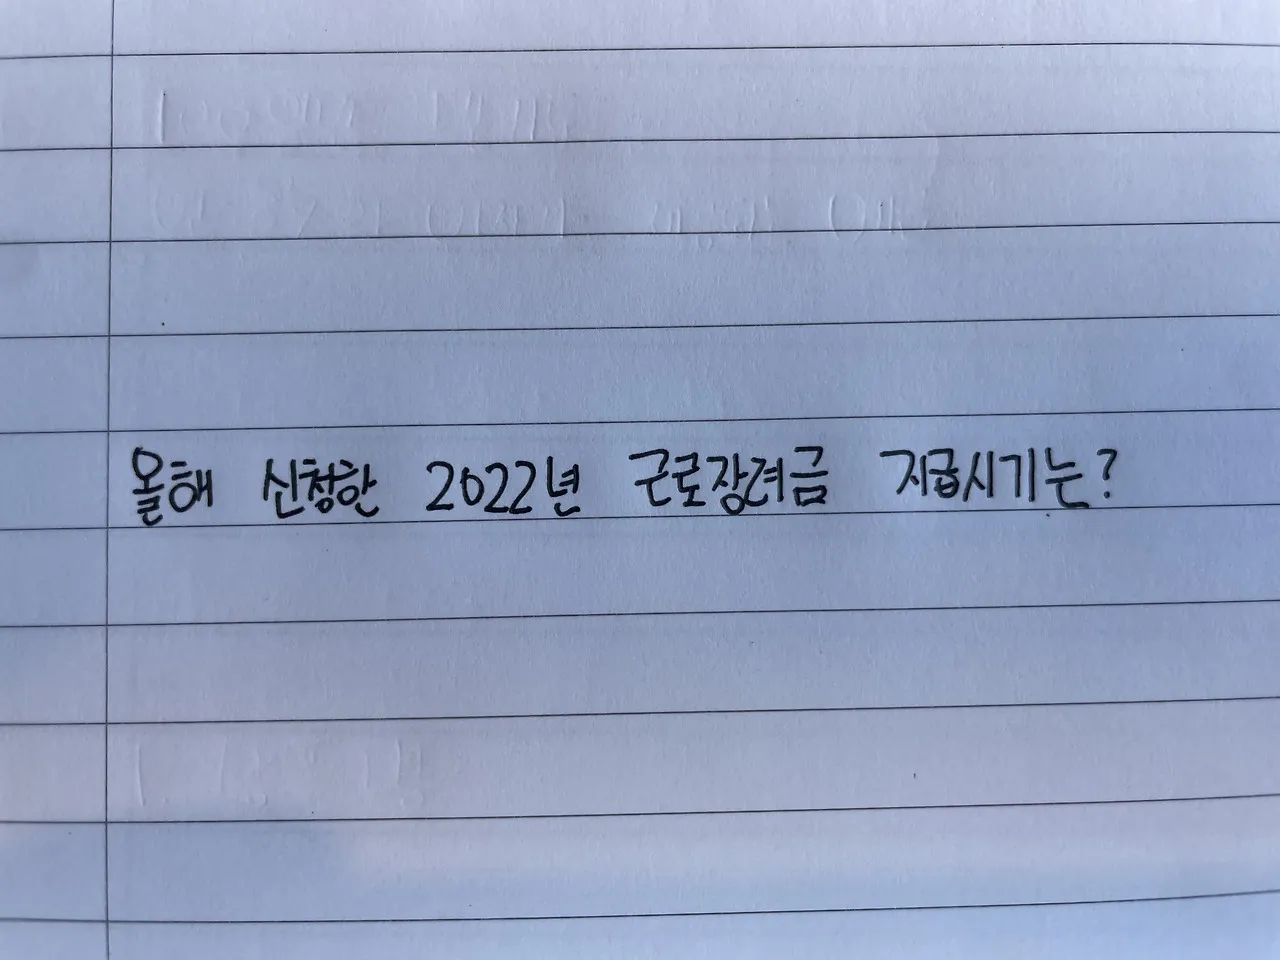 올해 신청한 2022년 근로장려금 지급시기는?